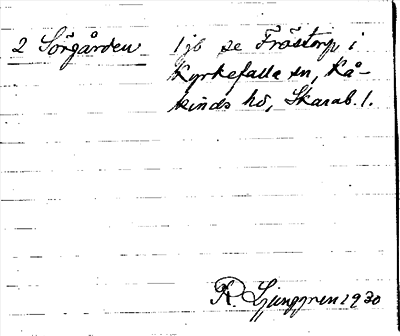 2 Sörgården ljb se Fröstorp i
Kyrkefalla sn, Kå-
kinds hd, Skarab. l.
R. Ljunggren 1930